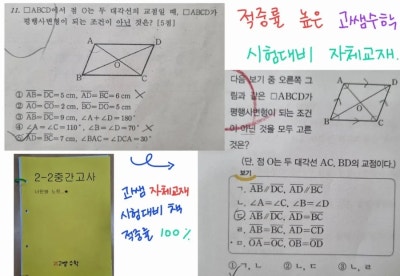 11. □ABCD에서 점 O는 두 대각선의 교점일 때, □ABCD가
평행사변형이 되는 조건이 아닌 것은? [5점]
A
D
O
B
C
① AB=DC=5 cm, AD=BC=6 cm
② AO=CO=2 cm, BO=DO=5 cm
③ AD=BC=9 cm, ∠A+∠D=180°
④ ∠A=∠C=110°, ∠B=∠D=70°
⑤ AB=DC=7 cm, ∠BAC=∠DCA=30°
적중률 높은 고쌤수학
시험대비 자체교재.
다음 보기 중 오른쪽 그
림과 같은 □ABCD가
평행사변형이 되는 조건
이 아닌 것을 모두 고른
것은?
A
D
O
B
C
(단, 점 O는 두 대각선 AC, BD의 교점이다.)
보기
ㄱ. AB∥DC, AD∥BC
ㄴ. ∠A=∠C, ∠B=∠D
ㄷ. AB=DC, AD∥BC
ㄹ. AB=BC, AD=CD
ㅁ. OA=OC, OB=OD
① ㄱ, ㄴ
② ㄴ, ㄷ
③ ㄴ, ㄹ
2-2중간고사
고쌤 수학
고쌤 자체교재
시험대비 책
적중률 100%